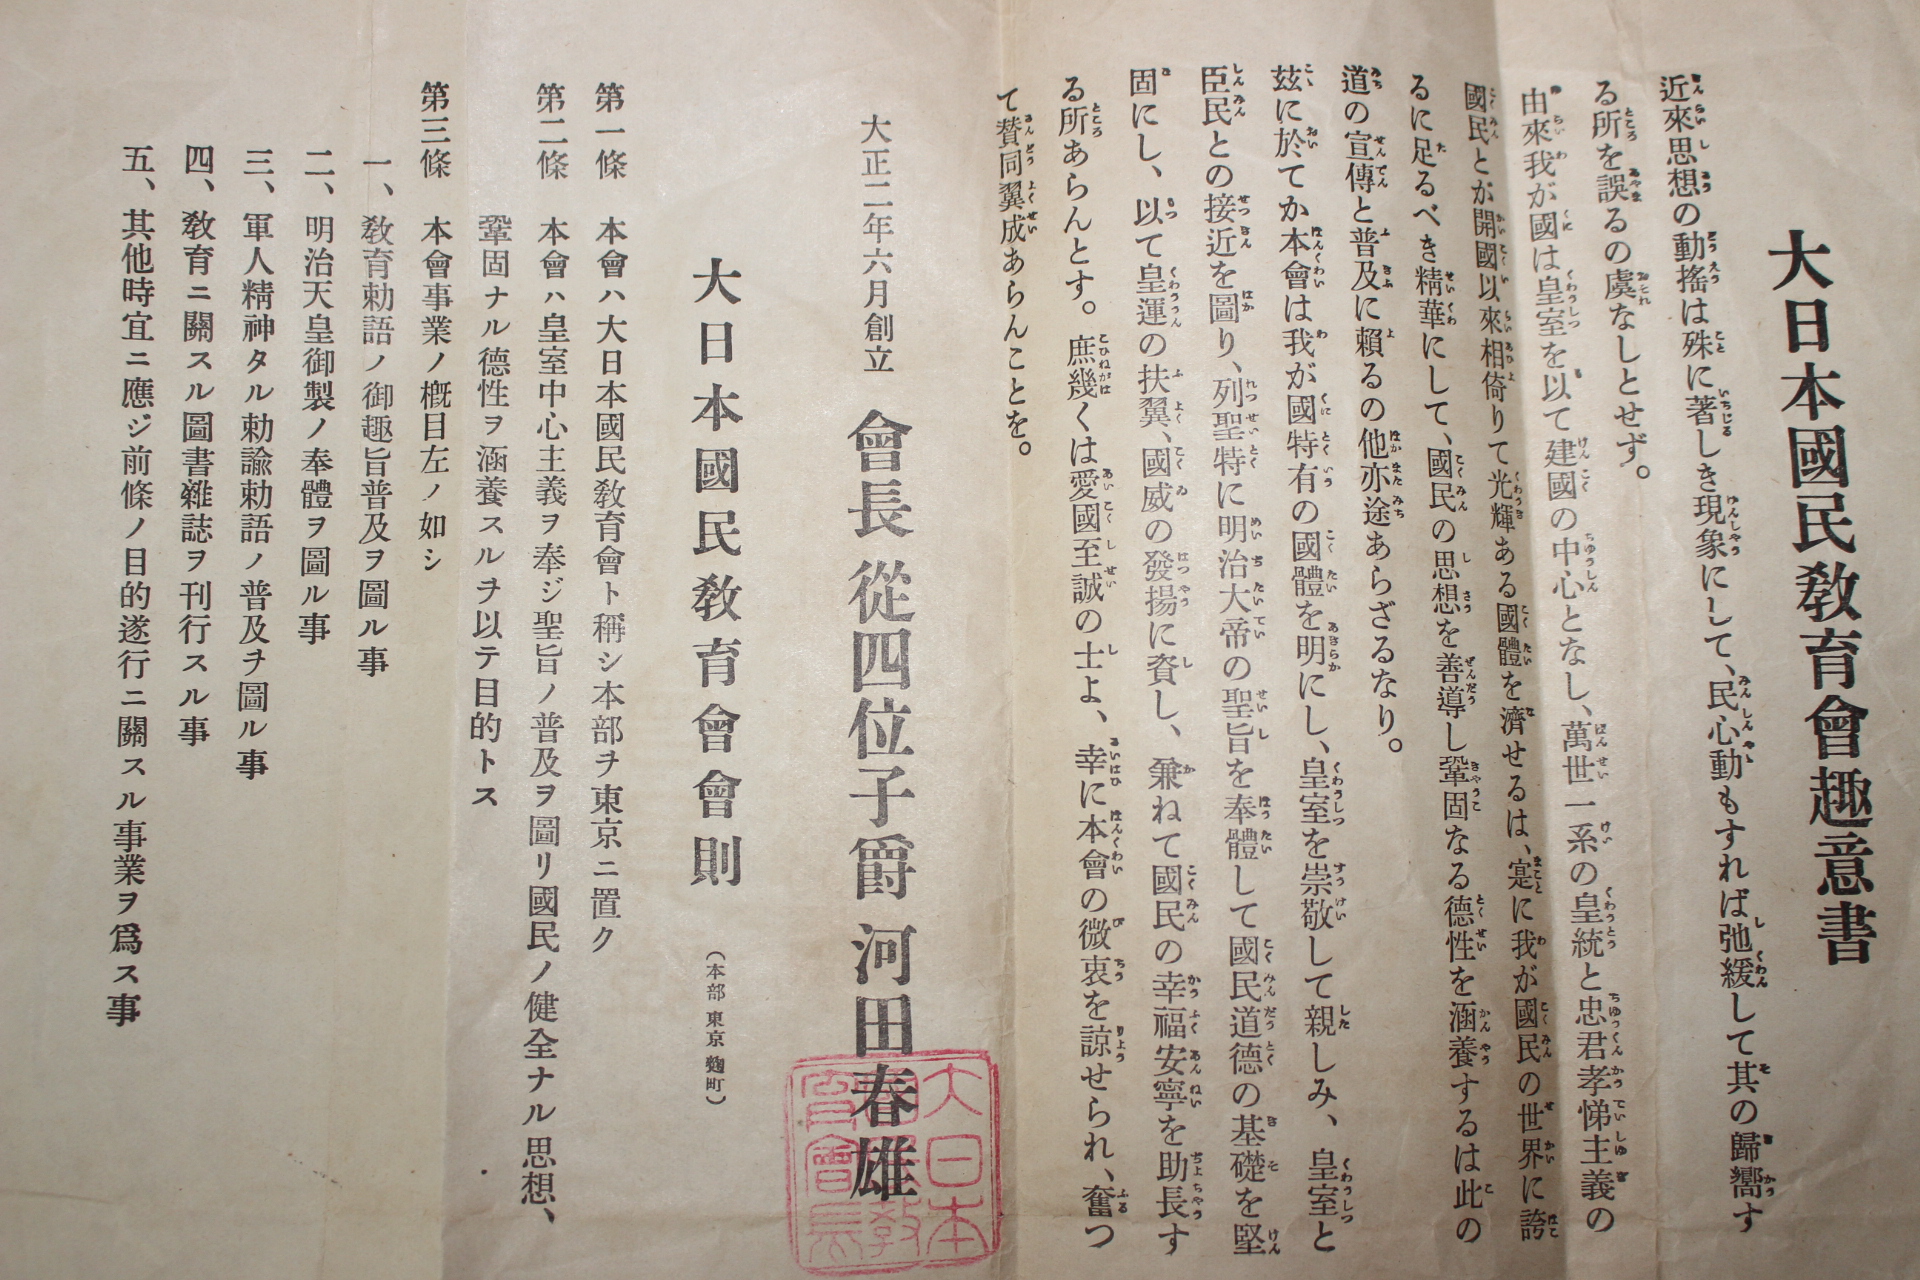 大日本國民敎育會趣意書
近來思想の動搖は殊に著しき現象にして、民心動もすれば弛緩して其の歸嚮す
る所を誤るの虞なしとせず。
由來我が國は皇室を以て建國の中心となし、萬世一系の皇統と忠君孝悌主義の
國民とが開國以來相倚りて光輝ある國體を濟せるは、寔に我が國民の世界に誇
るに足るべき精華にして、國民の思想を善導し鞏固なる德性を涵養するは此の
道の宣傳と普及に賴るの他亦途あらざるなり。
玆に於てか本會は我が國特有の國體を明にし、皇室を崇敬して親しみ、皇室と
臣民との接近を圖り、列聖特に明治大帝の聖旨を奉體して國民道德の基礎を堅
固にし、以て皇運の扶翼、國威の發揚に資し、兼ねて國民の幸福安寧を助長す
る所あらんとす。庶幾くは愛國至誠の士よ、幸に本會の微衷を諒せられ、奮つ
て賛同翼成あらんことを。
大正二年六月創立 會長 從四位子爵 河田春雄
大日本國民敎育會會則 (本部 東京 麴町)
第一條 本會ハ大日本國民敎育會ト稱シ本部ヲ東京ニ置ク
第二條 本會ハ皇室中心主義ヲ奉ジ聖旨ノ普及ヲ圖リ國民ノ健全ナル思想、
鞏固ナル德性ヲ涵養スルヲ以テ目的トス
第三條 本會事業ノ槪目左ノ如シ
一、敎育勅語ノ御趣旨普及ヲ圖ル事
二、明治天皇御製ノ奉體ヲ圖ル事
三、軍人精神タル勅諭勅語ノ普及ヲ圖ル事
四、敎育ニ關スル圖書雜誌ヲ刊行スル事
五、其他時宜ニ應ジ前條ノ目的遂行ニ關スル事業ヲ爲ス事
大日本
國民敎
育會長